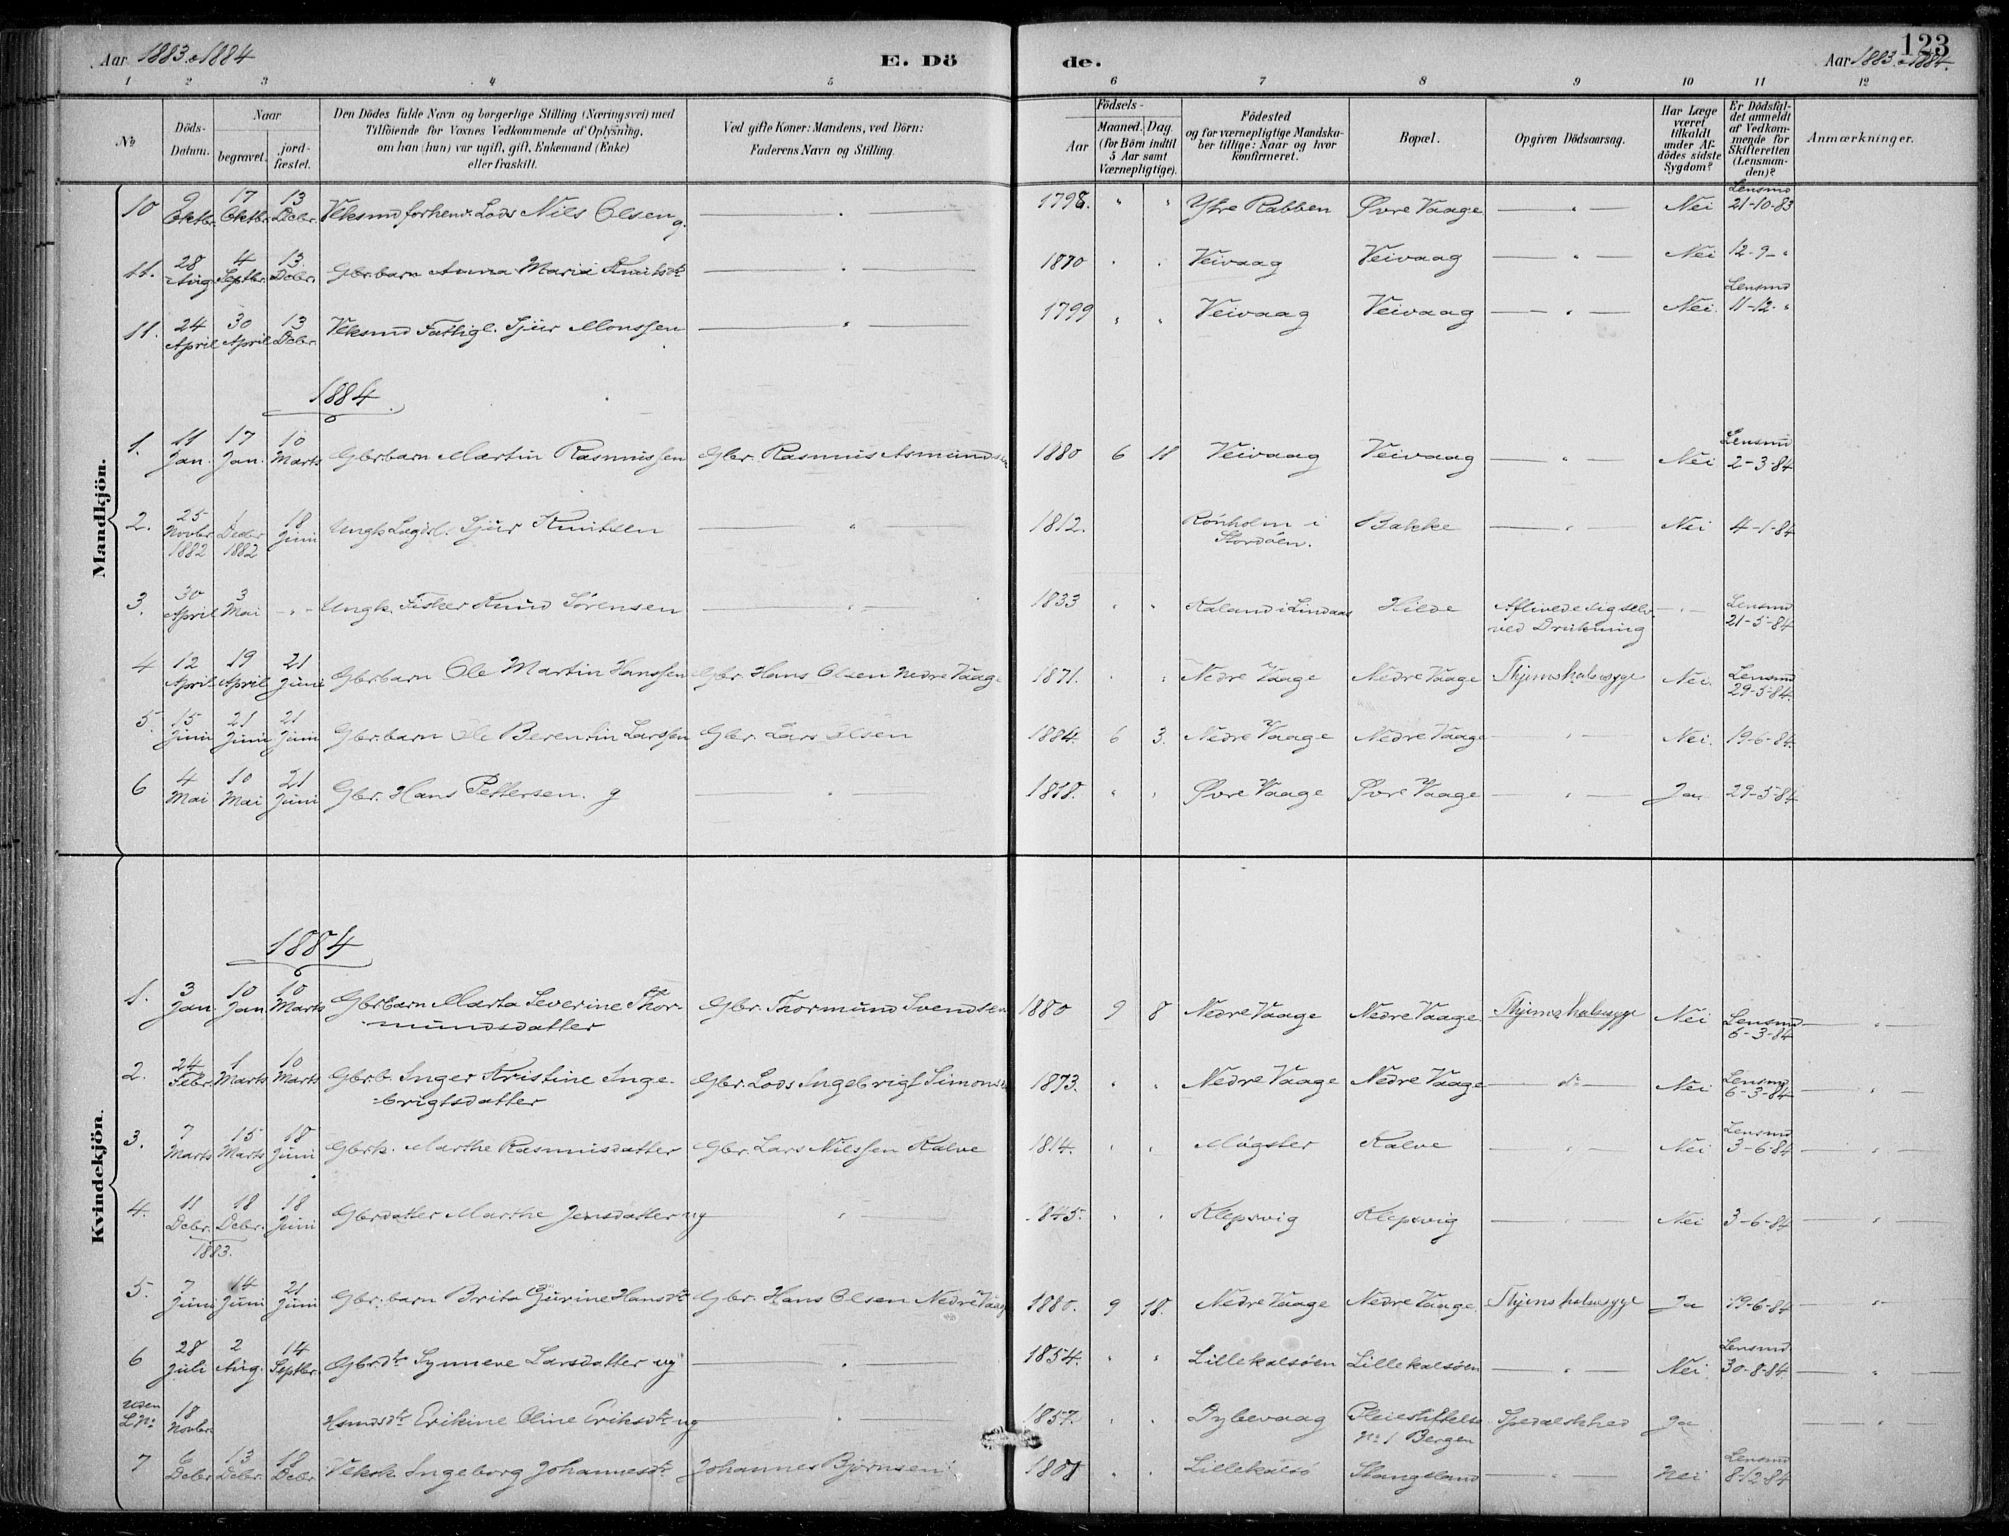 Aar 1883 o 1884
E. Dö
de.
Aar 1883 o 1884.
123
1 2 3 4 5 6 7 8 9 10 11 12
No
Döds-Datum.
Naar
begravet.
jord-fæstet.
Den Dödes fulde Navn og borgerlige Stilling (Næringsvei) med
Tilföiende for Voxnes Vedkommende af Oplysning,
om han (hun) var ugift, gift, Enkemand (Enke)
eller fraskilt.
Ved gifte Koner: Mandens, ved Börn:
Faderens Navn og Stilling.
Födsels-
Aar
Maaned. Dag.
(for Börn indtil
5 Aar samt
Værnepligtige).
Födested
og for værnepligtige Mandska-
ber tillige: Naar og hvor
konfirmeret.
Bopæl.
Opgiven Dödsaarsag.
Har Læge
været
tilkaldt
under Af-
dödes sidste
Sygdom?
Er Dödsfal-
det anmeldt
af Vedkom-
mende for
Skifteretten
(Lensman-
den)?
Anmærkninger.
Mandkjön.
10 9 Oktbr. 17 Oktbr. 13 Debr. Veksmd forhenv. Lods Nils Olsen g. — " — 1798. " " Ytre Rabben Øvre Vaage — " — Nei Lensmd 21-10-83
11. 28 Aug 4 Septbr. 13. Debr. Gbr.barn Anna Maria Knutsdtr — " — 1870 " " Veivaag Veivaag — " — Nei 12-9- "
11. 24 April 30 April 13 Debr. Veksmd Fattigl. Sjur Monssen — " — 1799 " " Veivaag Veivaag — " — Nei. Lensmd 11-12- "
1884
1. 11 Jan. 17 Jan. 10 Marts Gbr.barn Martin Rasmussen Gbr. Rasmus Asmundsen 1880 6 18 Veivaag Veivaag — " — Nei Lensmd 2-3-84
2. 25 Novbr 1882 1 Decbr 1882 18 Juni Ungk. Lægdsl. Sjur Knutsen — " — 1812. Rönholm i Stordöen. Bakke — " — Nei 4-1-84
3. 30 April 3 Mai - " - Ungk. Fisker Knud Sörensen — " — 1833 " " Kaland i Lindaas Hilde Aflivede sig selv ved Drukning - " - Lensmd 21-5-84
4 12 April 19 April 21 Juni Gbr.barn Ole Martin Hanssen Gbr. Hans Olsen Nedre Vaage 1871. " " Nedre Vaage Nedre Vaage Thjimshalssyge Nei. Lensmd 29-5-84.
5. 15 Juni 21 Juni 21 Juni Gbr.barn Ole Berentin Larssen Gbr. Lars Olsen 1884. 6 3. Nedre Vaage Nedre Vaage — " — Nei. 19-6-84.
6 4 Mai 10 Mai 21 Juni Gbr. Hans Pettersen. g — " — 1818. " " Øvre Vaage Øvre Vaage — " — Ja 29-5-84
Kvindekjön.
1884
1. 3 Jan. 10 Jan 10 Marts Gbr.barn Marta Severine Thor-
mundsdatter Gbr. Thormund Svendsen 1880 9 8 Nedre Vaage Nedre Vaage Thjimshalssyge Nei Lensmd 6-3-84 — " —
2. 24 Febr. 1 Marts 10 Marts Gbr.b. Inger Kristine Inge-
brigtsdatter Gbr. Lods Ingebrigt Simonsen 1873. " " Nedre Vaage Nedre Vaage — do — Nei Lensmd 6-3-84 — " —
3. 7 Marts 15 Marts 18 Juni Gbrk. Marthe Rasmusdatter Gbr. Lars Nilssen Kalve 1814. " " Mögster Kalve — " — Nei Lensmd 3-6-84 — " —
4. 11 Debr. 18 Debr. 1883. 18 Juni Gbrdatter Marthe Jensdatter ug — " — 1845. " " Klepsvig Klepsvig — " — Nei 3-6-84 — " —
5. 7 Juni 14 Juni 21 Juni Gbr.barn Brita Gurine Hansdtr Gbr. Hans Olsen Nedre Vaage 1880. 9 18. Nedre Vaage Nedre Vaage. Thjimshalssyge Ja 19-6-84 — " —
6 28 Juli 2 Aug. 14 Septbr. Gbrdtr Synneve Larsdatter ug — " — 1854. " " Lillekalsöen Lillekalsöen — " — Nei Lensmd 30-8-84. — " —
uden L.No 18 Novbr. Hsmdsdtr Erikine Oline Eriksdtr ug — " — 1857. " " Dybevaag Pleiestiftelse No 1 Bergen Spedalskhed Ja — " —
7 6 Debr 13 Debr. 18 Debr. Veksk. Ingeborg Johannesdtr Johannes Björnsen 1801 " " Lillekalsö Stangeland — " — Nei Lensmd 8-12-84